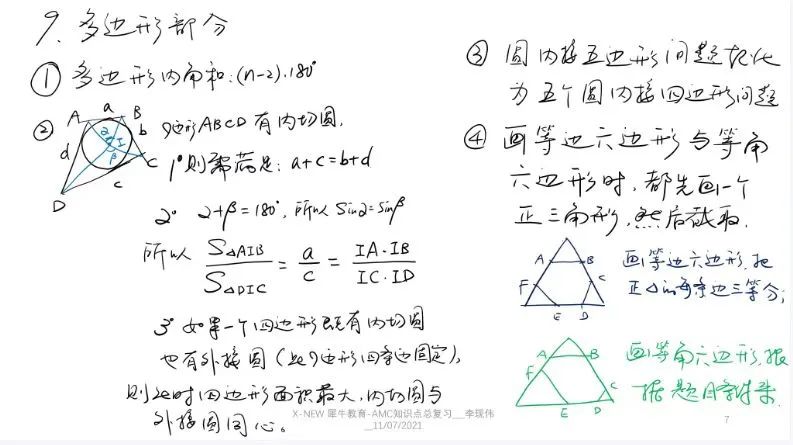 9. 多边形部分
① 多边形内角和:(n-2)·180°
②
A a B
b
C
c
D
d
α I
β
四边形ABCD有内切圆,
1° 则需满足: a+c=b+d
2° α+β=180°, 所以 sinα=sinβ
所以 S△AIB / S△DIC = a / c = IA·IB / IC·ID
3° 如果一个四边形既有内切圆
也有外接圆(此四边形四条边固定),
则此时四边形面积最大,内切圆与
外接圆同心。
③ 圆内接五边形问题转化
为五个圆内接四边形问题
④ 画等边六边形与等角
六边形时,都先画一个
正三角形,然后截取.
A B
F C
E D
画等边六边形,把
正△的每条边三等分;
A B
F C
E D
画等角六边形,根
据题目条件来.
X-NEW 犀牛教育-AMC知识点总复习__李现伟
__11/07/2021
7